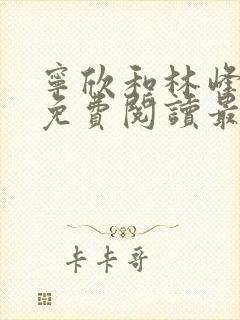 寧欣和林峰
免費閱讀最
卡卡哥